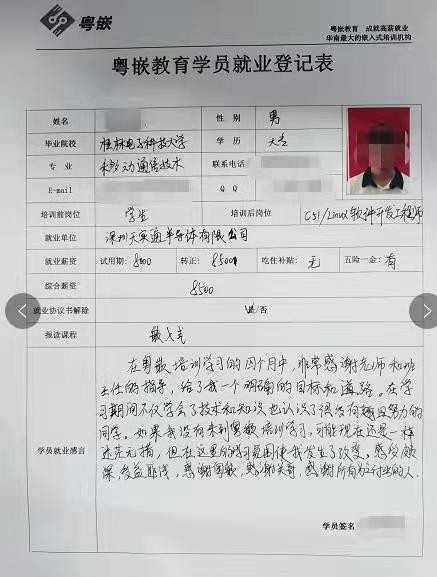 粤嵌
粤嵌教育 成就高薪就业
华南最大的嵌入式培训机构
粤嵌教育学员就业登记表
姓名 性别 男
毕业院校 桂林电子科技大学 学历 大专
专业 移动通信技术 联系电话
E-mail Q Q
培训前岗位 学生 培训后岗位 C51/Linux软件开发工程师
就业单位 深圳天芯通半导体有限公司
就业薪资 试用期: 8000 转正: 8500 吃住补贴: 无 五险一金: 有
综合薪资 8500
就业协议书解除 是/否
报读课程 嵌入式
在粤嵌培训学习的四个月中,非常感谢老师和班
主任的指导,给了我一个明确的目标和道路。在学
习期间不仅学会了技术和知识也认识了很多有趣且努力的
同学。如果我没有来到粤嵌培训学习,可能现在还是一样
迷茫无措,但在这里的学习氛围使我发生了改变,感受颇
深,受益匪浅,感谢粤嵌,感谢老师,感谢所有为之付出的人.
学员就业感言
学员签名